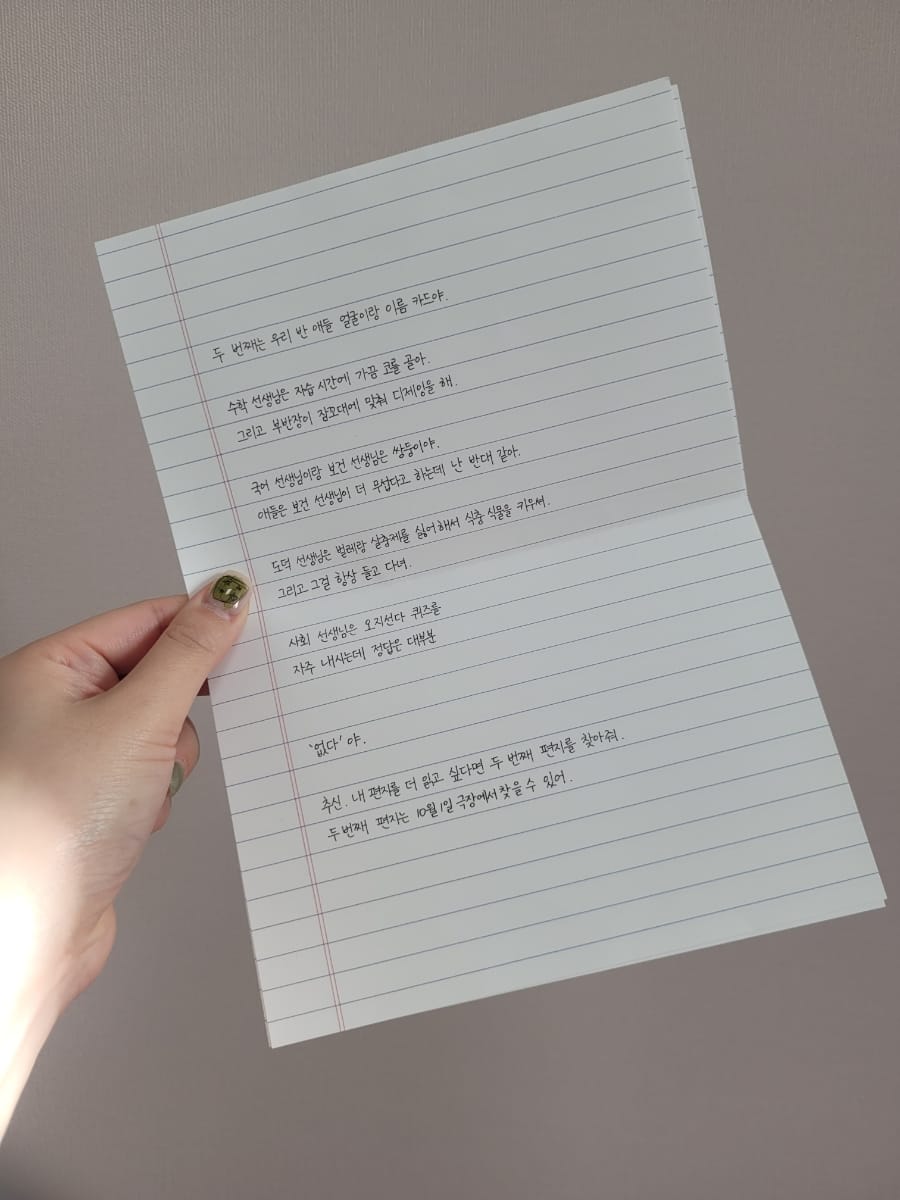 두 번째는 우리 반 애들 얼굴이랑 이름 카드야.
수학 선생님은 자습 시간에 가끔 코를 골아.
그리고 부반장이 잠꼬대에 맞춰 디제잉을 해.
국어 선생님이랑 보건 선생님은 쌍둥이야.
애들은 보건 선생님이 더 무섭다고 하는데 난 반대 같아.
도덕 선생님은 벌레랑 살충제를 싫어해서 식충 식물을 키우셔.
그리고 그걸 항상 들고 다녀.
사회 선생님은 오지선다 퀴즈를
자주 내시는데 정답은 대부분
'없다' 야.
추신. 내 편지를 더 읽고 싶다면 두 번째 편지를 찾아줘.
두 번째 편지는 10월 1일 극장에서 찾을 수 있어.